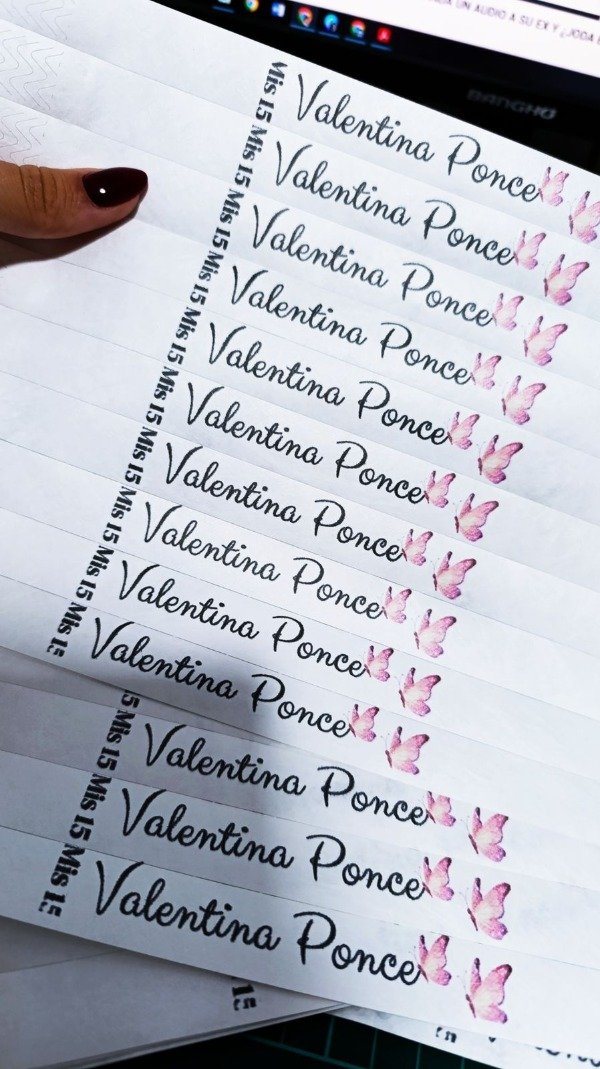 UN AUDIO A SU EX Y ¿JODA
BANGHO
Mis 15 Mis 15 Mis 15 Mis 15 Mis 15 Mis 15 Mis 15 Mis 15 Mis 15 Mis 15
Valentina Ponce
Valentina Ponce
Valentina Ponce
Valentina Ponce
Valentina Ponce
Valentina Ponce
Valentina Ponce
Valentina Ponce
Valentina Ponce
Valentina Ponce
5 Mis 15 Mis 15 Mis 15
Valentina Ponce
Valentina Ponce
Valentina Ponce